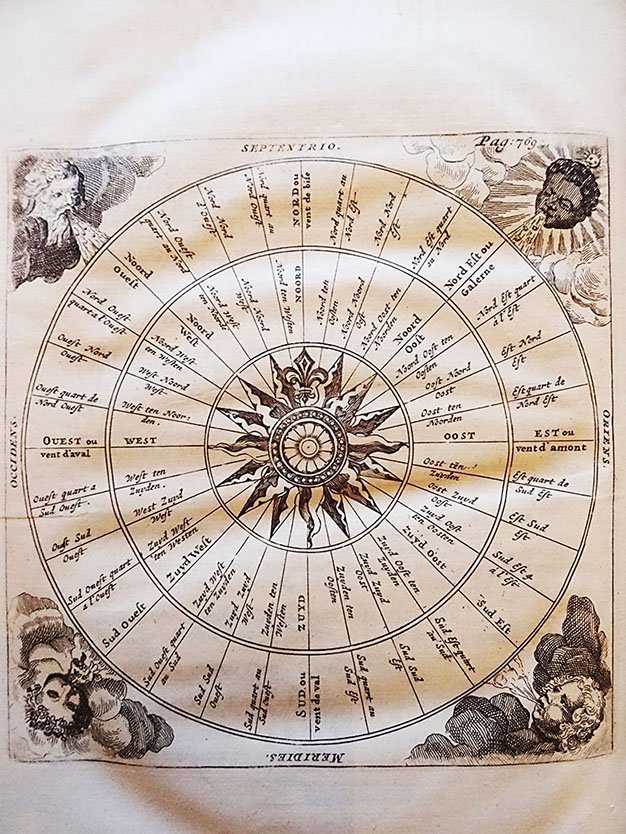 SEPTENTRIO.
Pag: 769
ORIENS
MERIDIES.
OCCIDENS
NORD ou
vent de bise
Nord quart au
Nord Est
Nord Nord
Est
Nord Est quart
au Nord
Nord Est ou
Galerne
Nord Est quart
à l'Est
Est Nord
Est
Est quart de
Nord Est
EST ou
vent d'amont
Est quart de
Sud Est
Est Sud
Est
Sud Est q.
à l'Est
Sud Est
Sud Est quart
au Sud
Sud Sud
Est
Sud quart au
Sud Est
SUD. ou
vent de val
Sud quart au
Sud Ouest
Sud Sud
Ouest
Sud Ouest quart
au Sud
Sud Ouest
Sud Ouest quart
a l'Ouest
Ouest Sud
Ouest
Ouest quart a
Sud Ouest.
OUEST ou
vent d'aval
Ouest quart de
Nord Ouest
Ouest Nord
Ouest
Nord Ouest
quart a l'Ouest
Noord
Ouest
Nord Ouest
quart au Nord
Nord Nord
d'Ouest
Nord quart au
Nord Ouest
NOORD
Noord ten
Oosten
Noord Noord
Oost
Noord Oost ten
Noorden
Noord
Oost
Noord Oost ten
Oosten
Oost Noord
Oost
Oost ten
Noorden
OOST
Oost ten
Zuyden
Oost Zuyd
Oost
Zuyd Oost
ten Oosten
Zuyd Oost
Zuyd Oost ten
Zuyden
Zuyd Zuyd
Oost
Zuyden ten
Oosten
ZUYD
Zuyden ten
Westen
Zuyd Zuyd
West
Zuyd West
ten Zuyden
Zuyd West
Zuyd West
ten Westen
West Zuyd
West
West ten
Zuyden.
WEST
West ten Noor:
den.
West Noord
West
Noord West
ten Westen
Noord
West
Noord West
ten Noorden
Noord Noord
West
Noord ten Westen